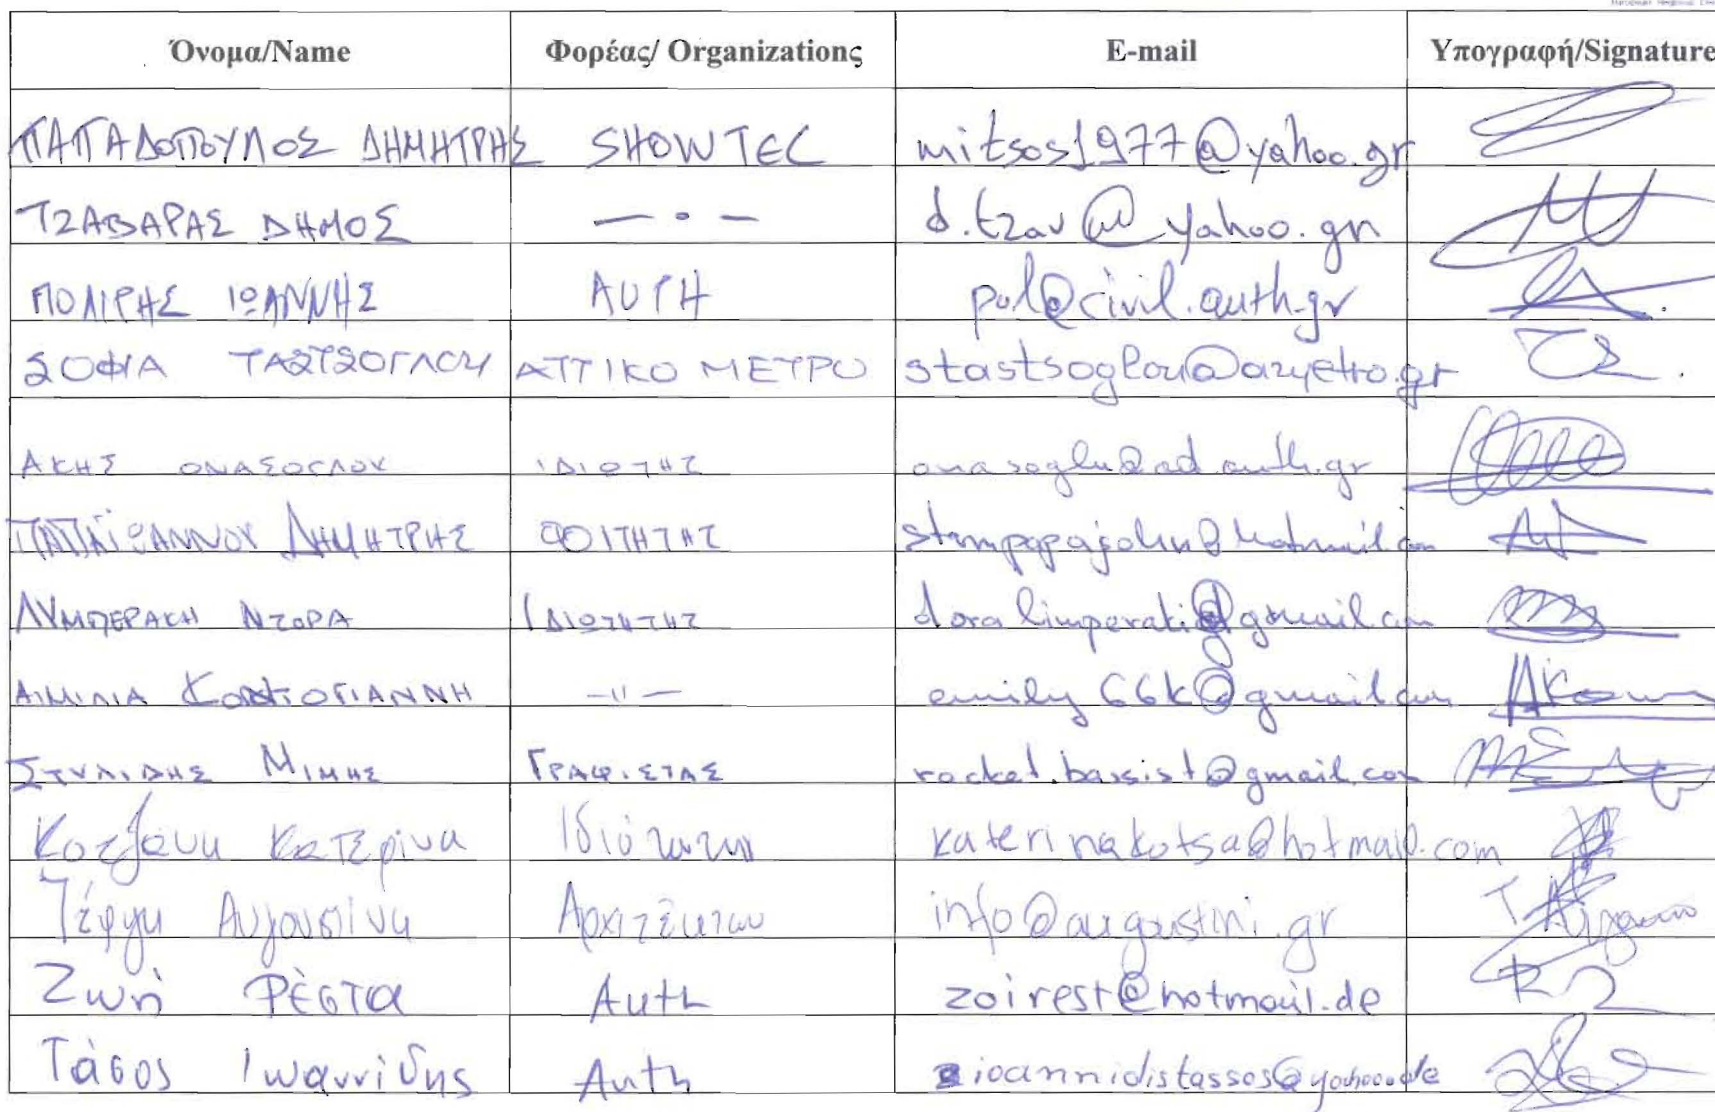 Όνομα/Name Φορέας/ Organizations E-mail Υπογραφή/Signature
ΠΑΠΑΔΟΠΟΥΛΟΣ ΔΗΜΗΤΡΗΣ SHOWTEC mitsos1977@yahoo.gr
ΤΖΑΒΑΡΑΣ ΔΗΜΟΣ — . — d.tzav@yahoo.gr
ΠΟΛΙΡΗΣ ΙΩΑΝΝΗΣ ΑΥΡΗ pol@civil.auth.gr
ΣΟΦΙΑ ΤΑΣΤΣΟΓΛΟΥ ΑΤΤΙΚΟ ΜΕΤΡΟ
ΑΚΗΣ ΟΝΑΣΟΓΛΟΥ ΙΔΙΩΤΗΣ onasoglu@ad.auth.gr
ΠΑΠΑΪΩΑΝΝΟΥ ΔΗΜΗΤΡΗΣ ΦΟΙΤΗΤΗΣ
ΛΥΜΠΕΡΑΚΗ ΝΤΟΡΑ
ΑΙΜΙΛΙΑ ΚΟΝΤΟΓΙΑΝΝΗ —〃— emily66k@gmail.com
ΣΤΥΛΙΔΗΣ ΜΙΜΗΣ ΓΡΑΦΙΣΤΑΣ rocket.bassist@gmail.com
Κοτζάνη Κατερίνα Ιδιώτης katerinakotsa@hotmail.com
Τέφγη Αυγουστίνη Αρχιτέκτων info@augustini.gr
Ζωή Ρέστα Auth zoirest@hotmail.de
Τάσος Ιωαννίδης Auth ioannidistassos@yahoo.de